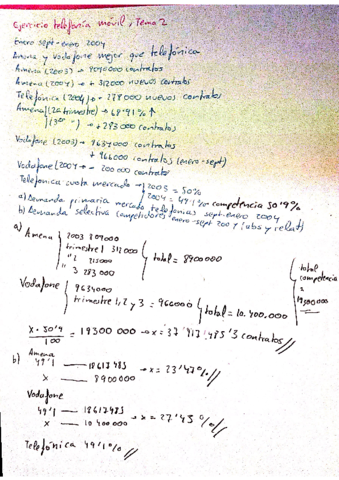 Ejercicio telefonía móvil, Tema 2
Enero sept-enero 2004
Amena y Vodafone mejor que telefónica
Amena (2003) → 8090000 contratos
Amena (2004) → + 312000 nuevos contratos
Telefónica (2004) → - 278000 nuevos contratos
Amena (2º trimestre) → 68'91% ↑
(3er ―) → + 283 000 contratos
Vodafone (2003) → 9634000 contratos
+ 966000 contratos (enero-sept)
Vodafone (2004 → - 200000 contratos
Telefónica cuota mercado → 2003 = 50%
2004 = 49'1% competencia 50'9%
a) Demanda primaria mercado telefonías sept-enero 2004
b) Demanda selectiva (competidores enero-sept 2004 (abs y relat)
a) Amena
2003 809000
trimestre 1 312000
" 2 215000
" 3 283 000
total = 8900000
Vodafone
9634000
trimestre 1, 2 y 3 = 966000
total = 10.400.000
total competencia = 19300000
x · 50'9 / 100 = 19300 000 → x = 37'917'485'3 contratos //
b) Amena
49'1 — 18617483
x — 8900000
→ x = 23'47% //
Vodafone
49'1 — 18617483
x — 10 400000
→ x = 27'43 % //
Telefónica 49'1% //